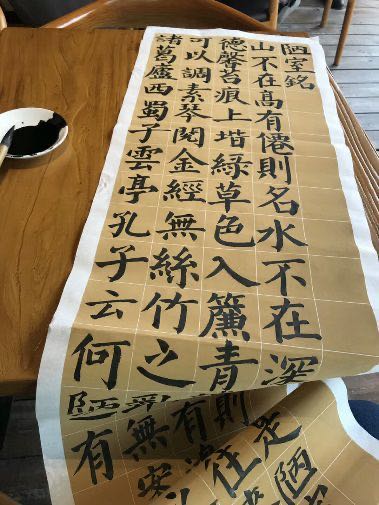 陋室銘
山不在高有僊則名水不在深
是陋
德馨苔痕上堦綠草色入簾青
往
可以調素琴閱金經無絲竹之
無
諸葛廬西蜀子雲亭孔子云何
陋有